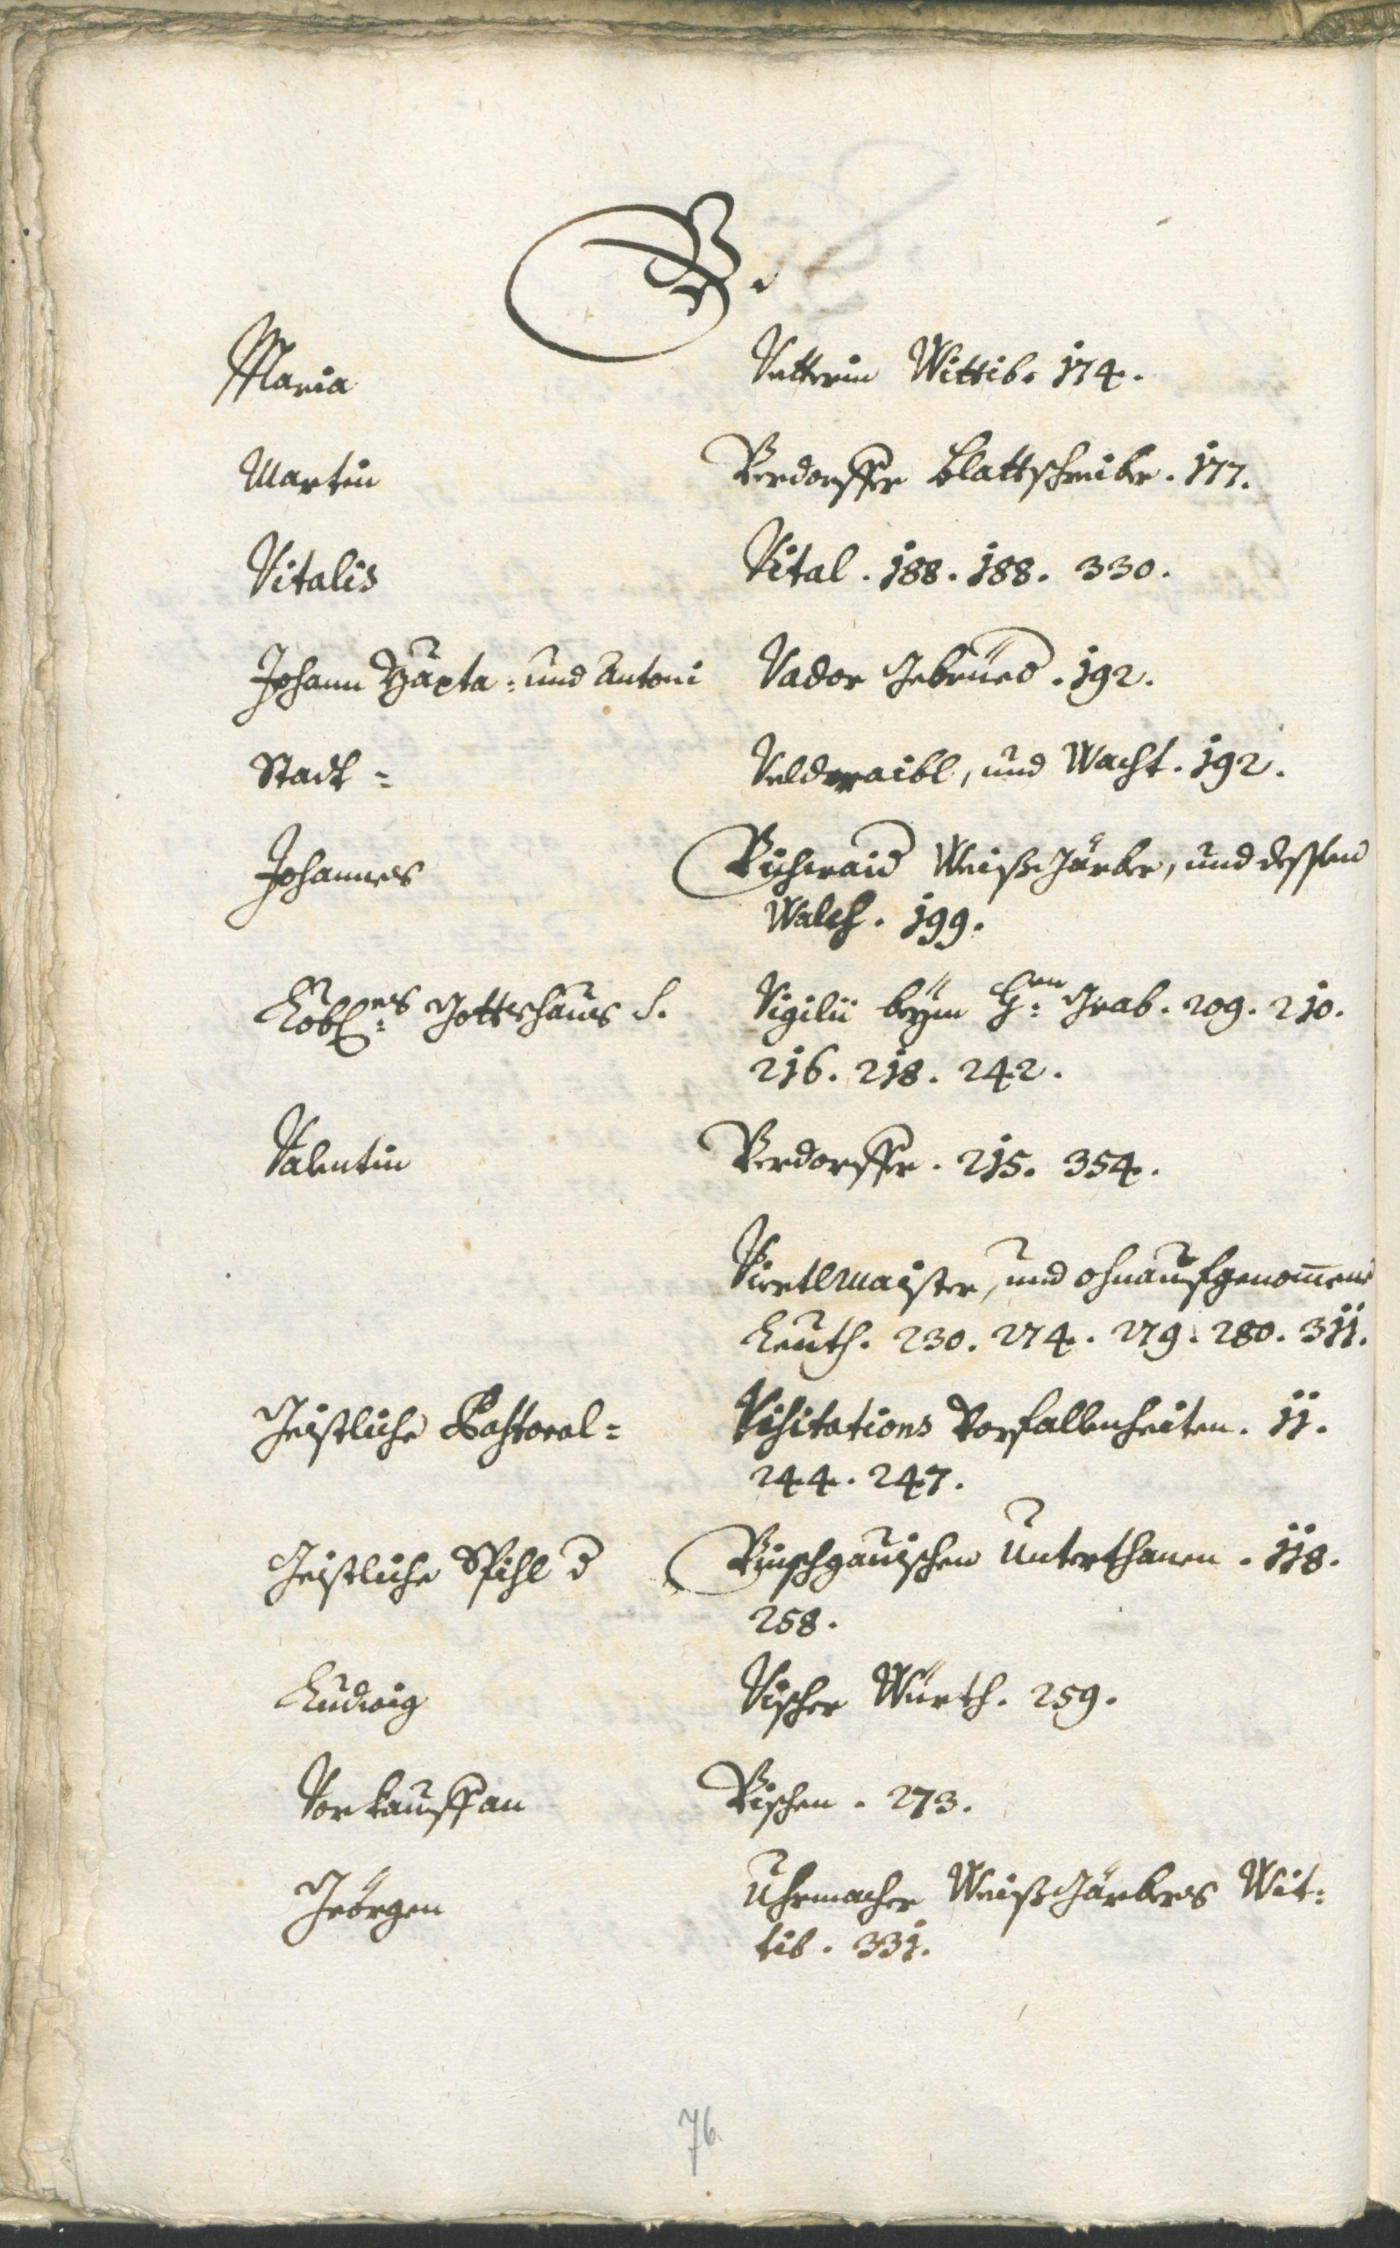 V.
Maria Vetterin Wittib. 174.
Martin Verdorffer Blattschreiber. 177.
Vitalis Vital. 188. 188. 330.
Johann Bapta: und Antoni Vador Gebrüed. 192.
Stadt = Veldwaibl, und Wacht. 192.
Johannes Weißgärber, und dessen
Walch. 199.
Löbl:es Gottshaus S. Vigilii beÿm H:en Grab. 209. 210.
216. 218. 242.
Valentin Verdorffer. 215. 354.
Viertlmaister, und ohnaufgenomene
Leuth. 230. 274. 279. 280. 311.
Geistliche Pastoral= Visitations Vorfallenheiten. 11.
244. 247.
Geistliche Spihl d Vinschgauischen Unterthanen. 118.
258.
Ludwig Vischer Würth. 259.
Vorkauff an Vischen. 273.
Geörgen Uhrmacher Weißgärbers Wit:
tib. 331.
76